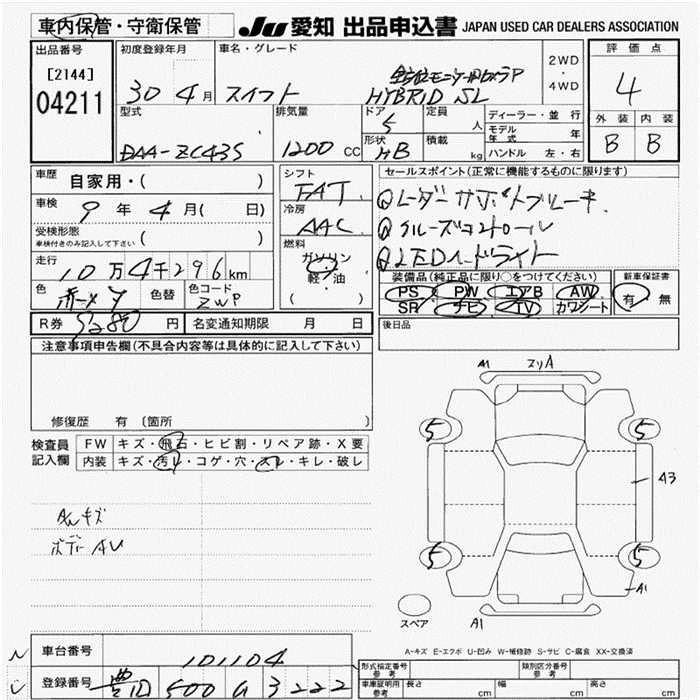 車内保管・守衛保管
JU 愛知 出品申込書 JAPAN USED CAR DEALERS ASSOCIATION
出品番号
[2144]
04211
初度登録年月
30年4月
車名・グレード
スイフト
全方位モニター用カメラP
HYBRID SL
2WD
・
4WD
評価点
4
外装 内装
B B
型式
DAA-ZC43S
排気量
1200 CC
ドア
5
形状
HB
定員
人
積載
kg
ディーラー・並行
モデル年式 年
ハンドル 左・右
車歴
自家用・( )
車検
9年4月( 日)
受検形態
車検付きのみ記入して下さい ( )
走行
10万4千296km
色
赤メタ
色替
色コード
ZWP
R券 9280円
名変通知期限 月 日
シフト
FAT
冷房
AAC
燃料
ガソリン
軽・油
( )
セールスポイント(正常に機能するものに限ります)
①レーダーサポートブレーキ
②クルーズコントロール
③LEDヘッドライト
装備品(純正品に限り○をつけてください)
PS PW エアB AW
SR ナビ TV カワシート
新車保証書
有・無
後日品
注意事項申告欄(不具合内容等は具体的に記入して下さい)
修復歴 有 〔箇所 〕
検査員
記入欄
FW キズ・飛石・ヒビ割・リペア跡・X要
内装 キズ・汚れ・コゲ・穴・スレ・キレ・破レ
AWキズ
ボディーAU
A1 スリA
5 5
A3
5 5
A1
スペア
A1
A-キズ E-エクボ U-凹み W-補修跡 S-サビ C-腐食 XX-交換済
車台番号
101104
登録番号
豊田 500 な 3222
形式指定番号
参考
類別区分番号
車庫証明用
参考
長さ cm 幅 cm 高さ cm